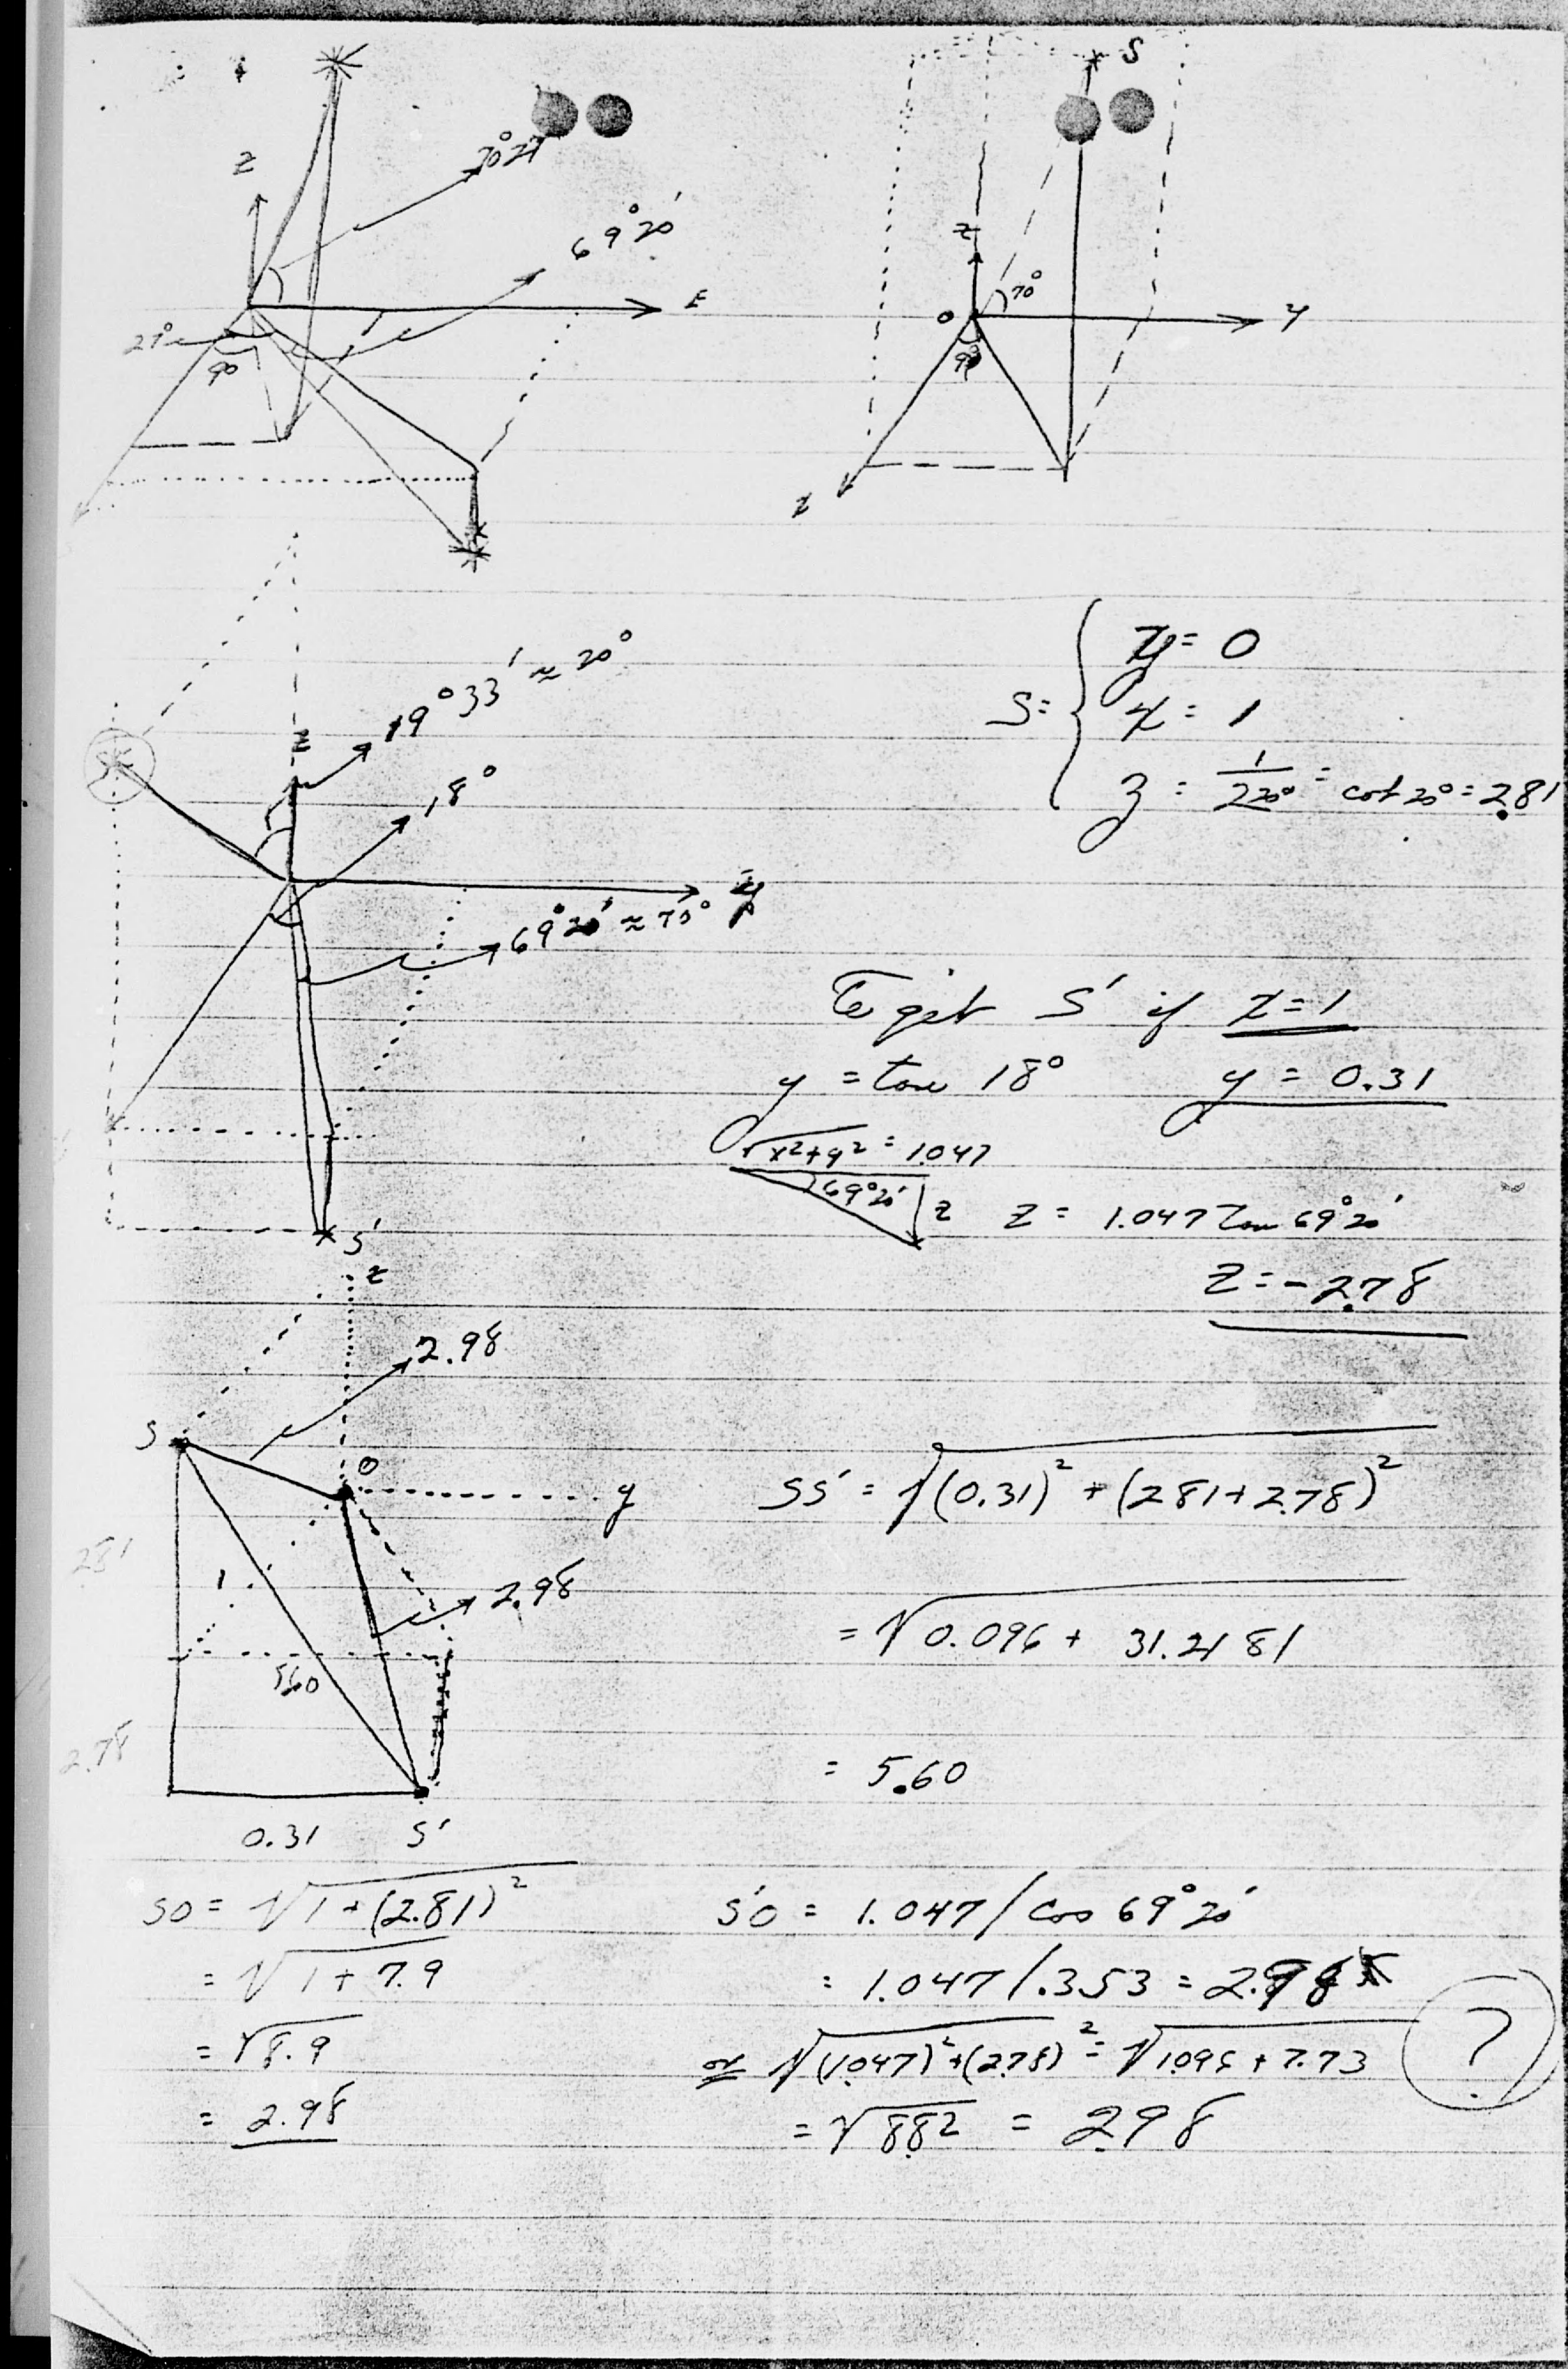 S
Z
70°27'
69°20'
E
21°
90
z
70°
O
y
90
x
19°33' ≈ 20°
Z
18°
y
69°20' ≈ 70°
S'
S = { y = 0
x = 1
z = = cot 20° = 2.81
To get S' if x = 1
y = tan 18° y = 0.31
√x²+y² = 1.047
69°20' z z = 1.047 tan 69°20'
z = -2.78
z
2.98
S
O
y
SS' = √(0.31)² + (2.81+2.78)²
2.81
1
2.98
= √0.096 + 31.2181
5.60
2.78
= 5.60
0.31 S'
SO = √1+(2.81)²
= √1+7.9
= √8.9
= 2.98
S'O = 1.047/cos 69°20'
= 1.047/.353 = 2.98
or √(1.047)²+(2.78)² = √1.096 + 7.73
= √8.82 = 2.98
?